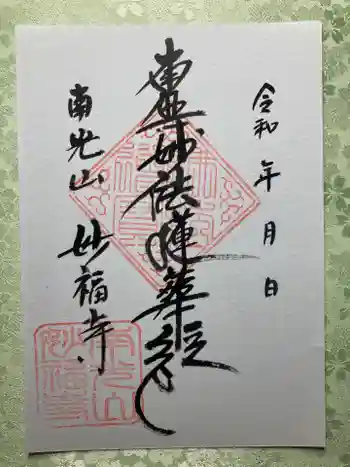 令和 年 月 日
南無妙法蓮華経
南光山
妙福寺